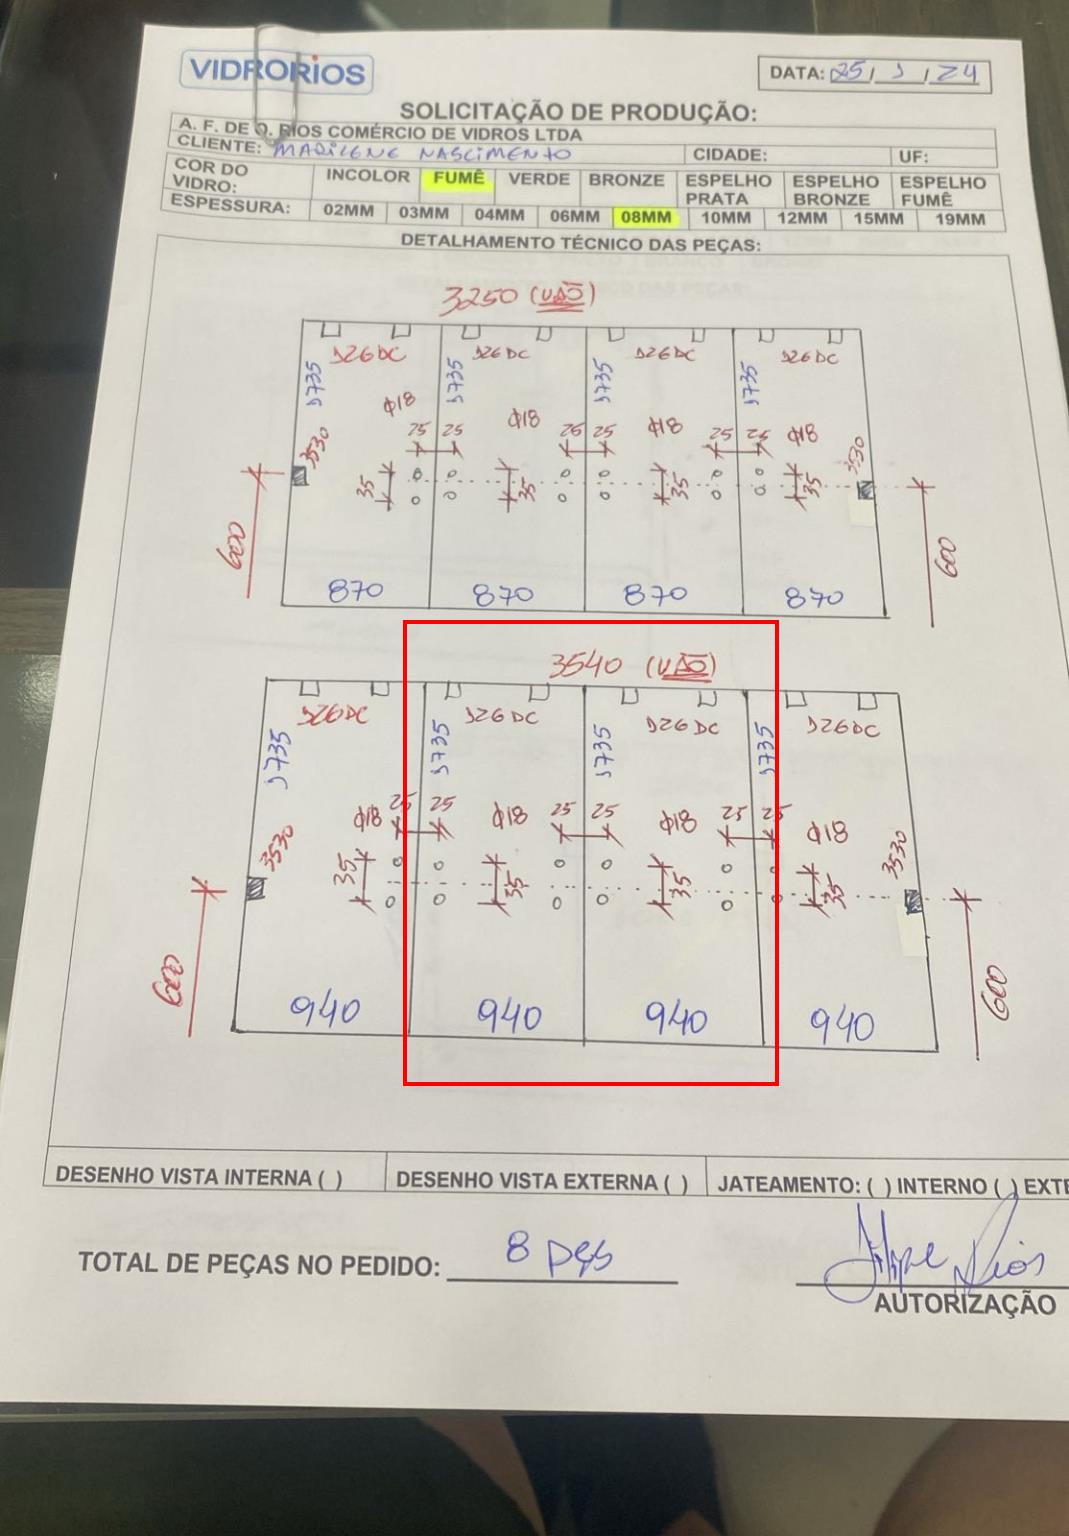 VIDRORIOS
DATA: 25/1/24
SOLICITAÇÃO DE PRODUÇÃO:
A. F. DE O. RIOS COMÉRCIO DE VIDROS LTDA
CLIENTE: MARILENE NASCIMENTO CIDADE: UF:
COR DO VIDRO: INCOLOR FUMÊ VERDE BRONZE ESPELHO PRATA ESPELHO BRONZE ESPELHO FUMÊ
ESPESSURA: 02MM 03MM 04MM 06MM 08MM 10MM 12MM 15MM 19MM
DETALHAMENTO TÉCNICO DAS PEÇAS:
3250 (VÃO)
126DC 126DC 126DC 126DC
1735 1735 1735 1735
Φ18 Φ18 Φ18 Φ18
25 25 26 25 25 25
3530 3530
35 35 35 35
600 600
870 870 870 870
3540 (VÃO)
126DC 126DC 126DC 126DC
1735 1735 1735 1735
25 25 25 25 25 25
Φ18 Φ18 Φ18 Φ18
3530 3530
35 35 35 35
600 600
940 940 940 940
DESENHO VISTA INTERNA ( ) DESENHO VISTA EXTERNA ( ) JATEAMENTO: ( ) INTERNO ( ) EXTE
TOTAL DE PEÇAS NO PEDIDO: 8 pçs
Filipe Rios
AUTORIZAÇÃO